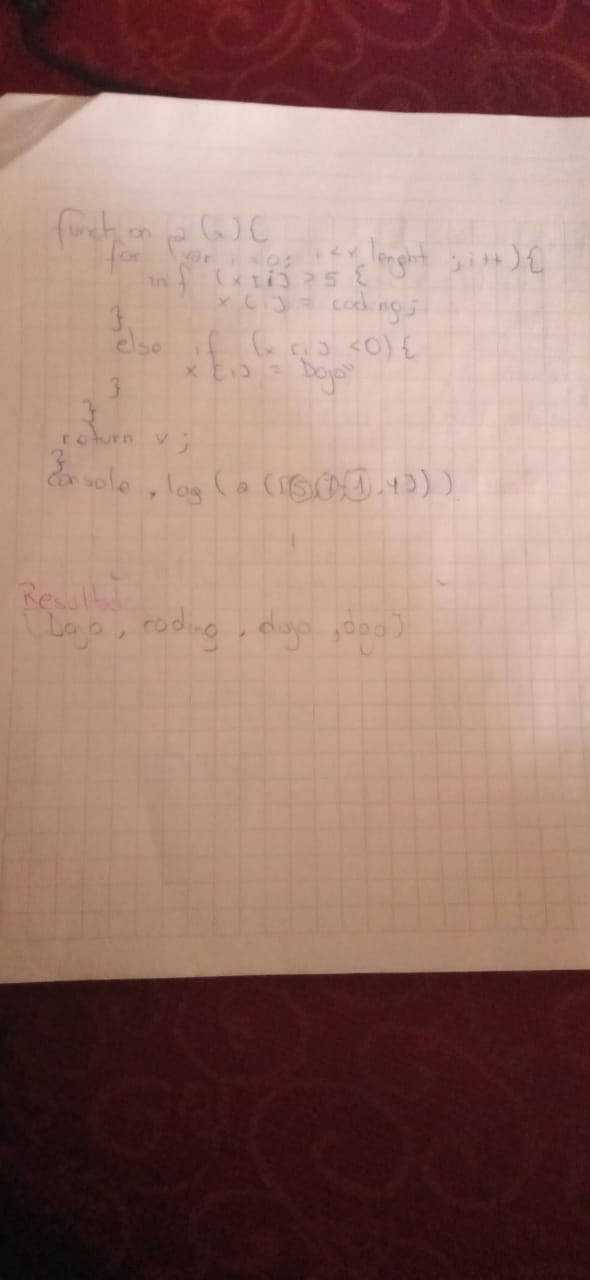 function a (x) {
for (var i =0; i<x lenght ; i++) {
inf (x [i] > 5 {
x [i] = coding;
}
else if (x [i] <0) {
x [i] = Dojo"
}
}
return x ;
}
console . log ( a (
Resultado
[ Dojo , coding , dojo , dojo]